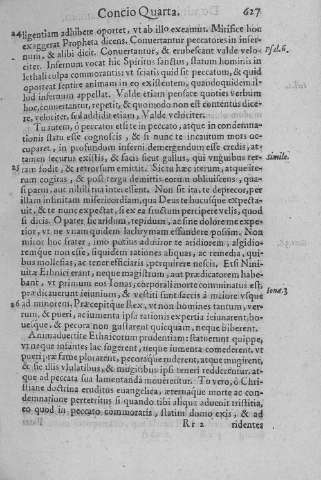 Concio Quarta. 627
24 ligentiam adhibere oportet, vt ab illo exeamus. Mirifice hoc
exaggerat Propheta dicens. Conuertantur peccatores in infer-
num, & alibi dicit. Conuertantur, & erubescant valde velo- Psal. 6.
citer. Infernum vocat hic Spiritus sanctus, statum hominis in
lethali culpa commorantis: vt sciatis quid sit peccatum, & quid
oporteat sentire animam in eo existentem, quandoquidem il-
lud infernum appellat. Valde etiam perspice quoties verbum
hoc, conuertantur, repetit, & quomodo non est contentus dice
re, velociter, sed addidit etiam, Valde velociter.
Tu autem, ô peccator es siste in peccato, atque in condemna-
tionis statu esse cognoscis, & si nunc te incautum mors oc-
cuparet, in profundum inferni demergendum esse credis, at-
tamen securus existis, & facis sicut gallus, qui vnguibus ter- Simile.
25 ram fodit, & retrorsum emittit. Sic tu hæc iterum, atque ite-
rum cogitas, & post terga demittis eorum obliuiscens, qua-
si parui, aut nihil tua intersit. Non sit ita, te deprecor, per
illam infinitam misericordiam, qua Deus te hucusque expecta-
uit, & te nunc expectat, si ex ea fructum percipere velis, quod
si dicis. O pater sic aridum, tepidum, ac sine dolore me expe-
rior, vt ne vnam quidem lachrymam effundere possim. Non
miror hoc frater, imo potius admiror te aridiorem, algidio-
remque non esse, siquidem rationes aliquas, ac remedia, qui-
bus mollescas, ac tener efficiaris, perquirere nescis. Etsi Nini-
uitæ Ethnici erant, neque magistrum, aut prædicatorem habe-
bant, vt primum eos Ionas, corporali morte comminatus est,
prædicauerunt ieiunium, & vestiti sunt saccis à maiore vsque Ionæ. 3
26 ad minorem. Præcepitque Rex, vt non homines tantum, ver-
rum, & pueri, ac iumenta ipsa rationis expertia ieiunarent; bo-
uesque, & pecora non gustarent quicquam, neque biberent.
Animaduertite Ethnicorum prudentiam: statuerunt quippe,
vt neque infantes lac sugerent, neque iumenta comederent, vt
pueri præ fame plorarent, pecoraque ruderent, atque mugirent,
& sic illis vlulatibus, & mugitibus ipsi teneri redderentur, at-
que ad peccata sua lamentanda mouerentur. Tu vero, ô Chri-
stiane doctrina eruditus euangelica, æternaque morte ac con-
demnatione perterritus si quando tibi aliqua aduenit tristitia,
eo quod in peccato commoraris, statim domo exis, & ad
Rr 2 ridentes